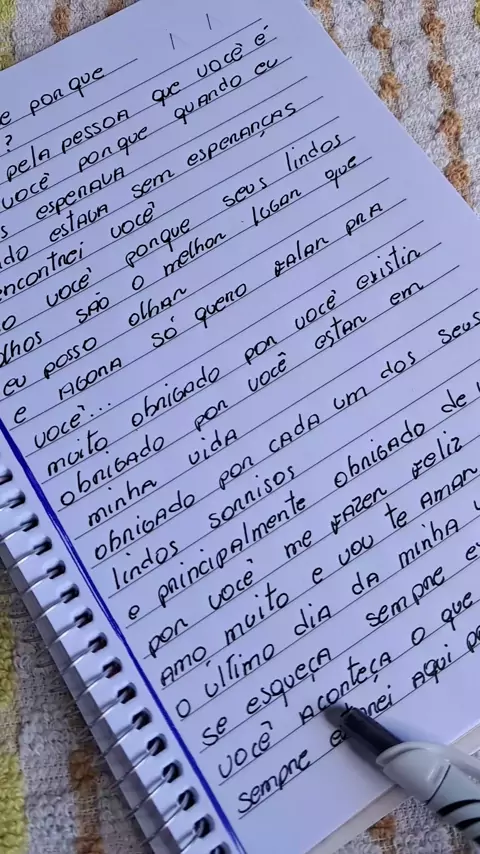 e porque
?
pela pessoa que você é
você porque quando eu
s esperava
do estava sem esperanças
encontrei você
o você porque seus lindos
olhos são o melhor lugar que
eu posso olhar
e agora só quero falar pra
você...
muito obrigado por você existir
obrigado por você estar em
minha vida
obrigado por cada um dos seus
lindos sorrisos
e principalmente obrigado de
por você me fazer feliz
amo muito e vou te amar
o último dia da minha
se esqueça sempre
você aconteça o que
sempre aqui